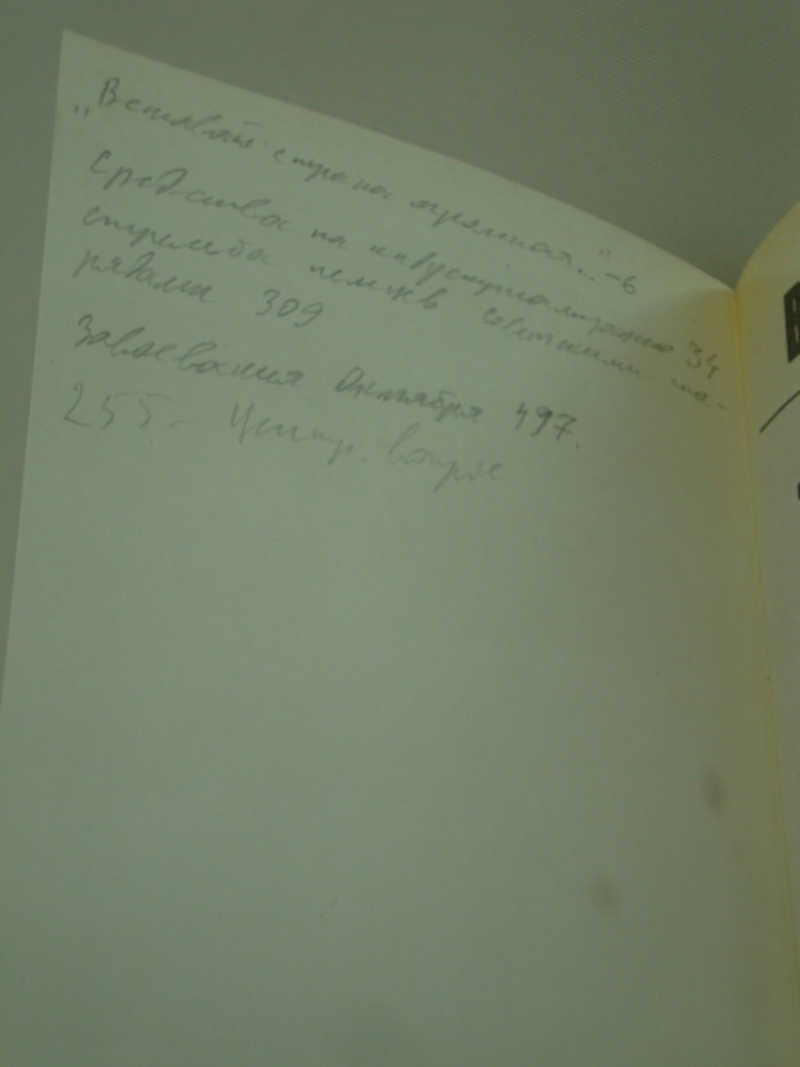 „Вставай страна огромная.." -6
Средства на индустриализацию 34
стрельба немцев советскими сна-
рядами 309
Завоевания Октября 497.
255 - Центр. вопрос